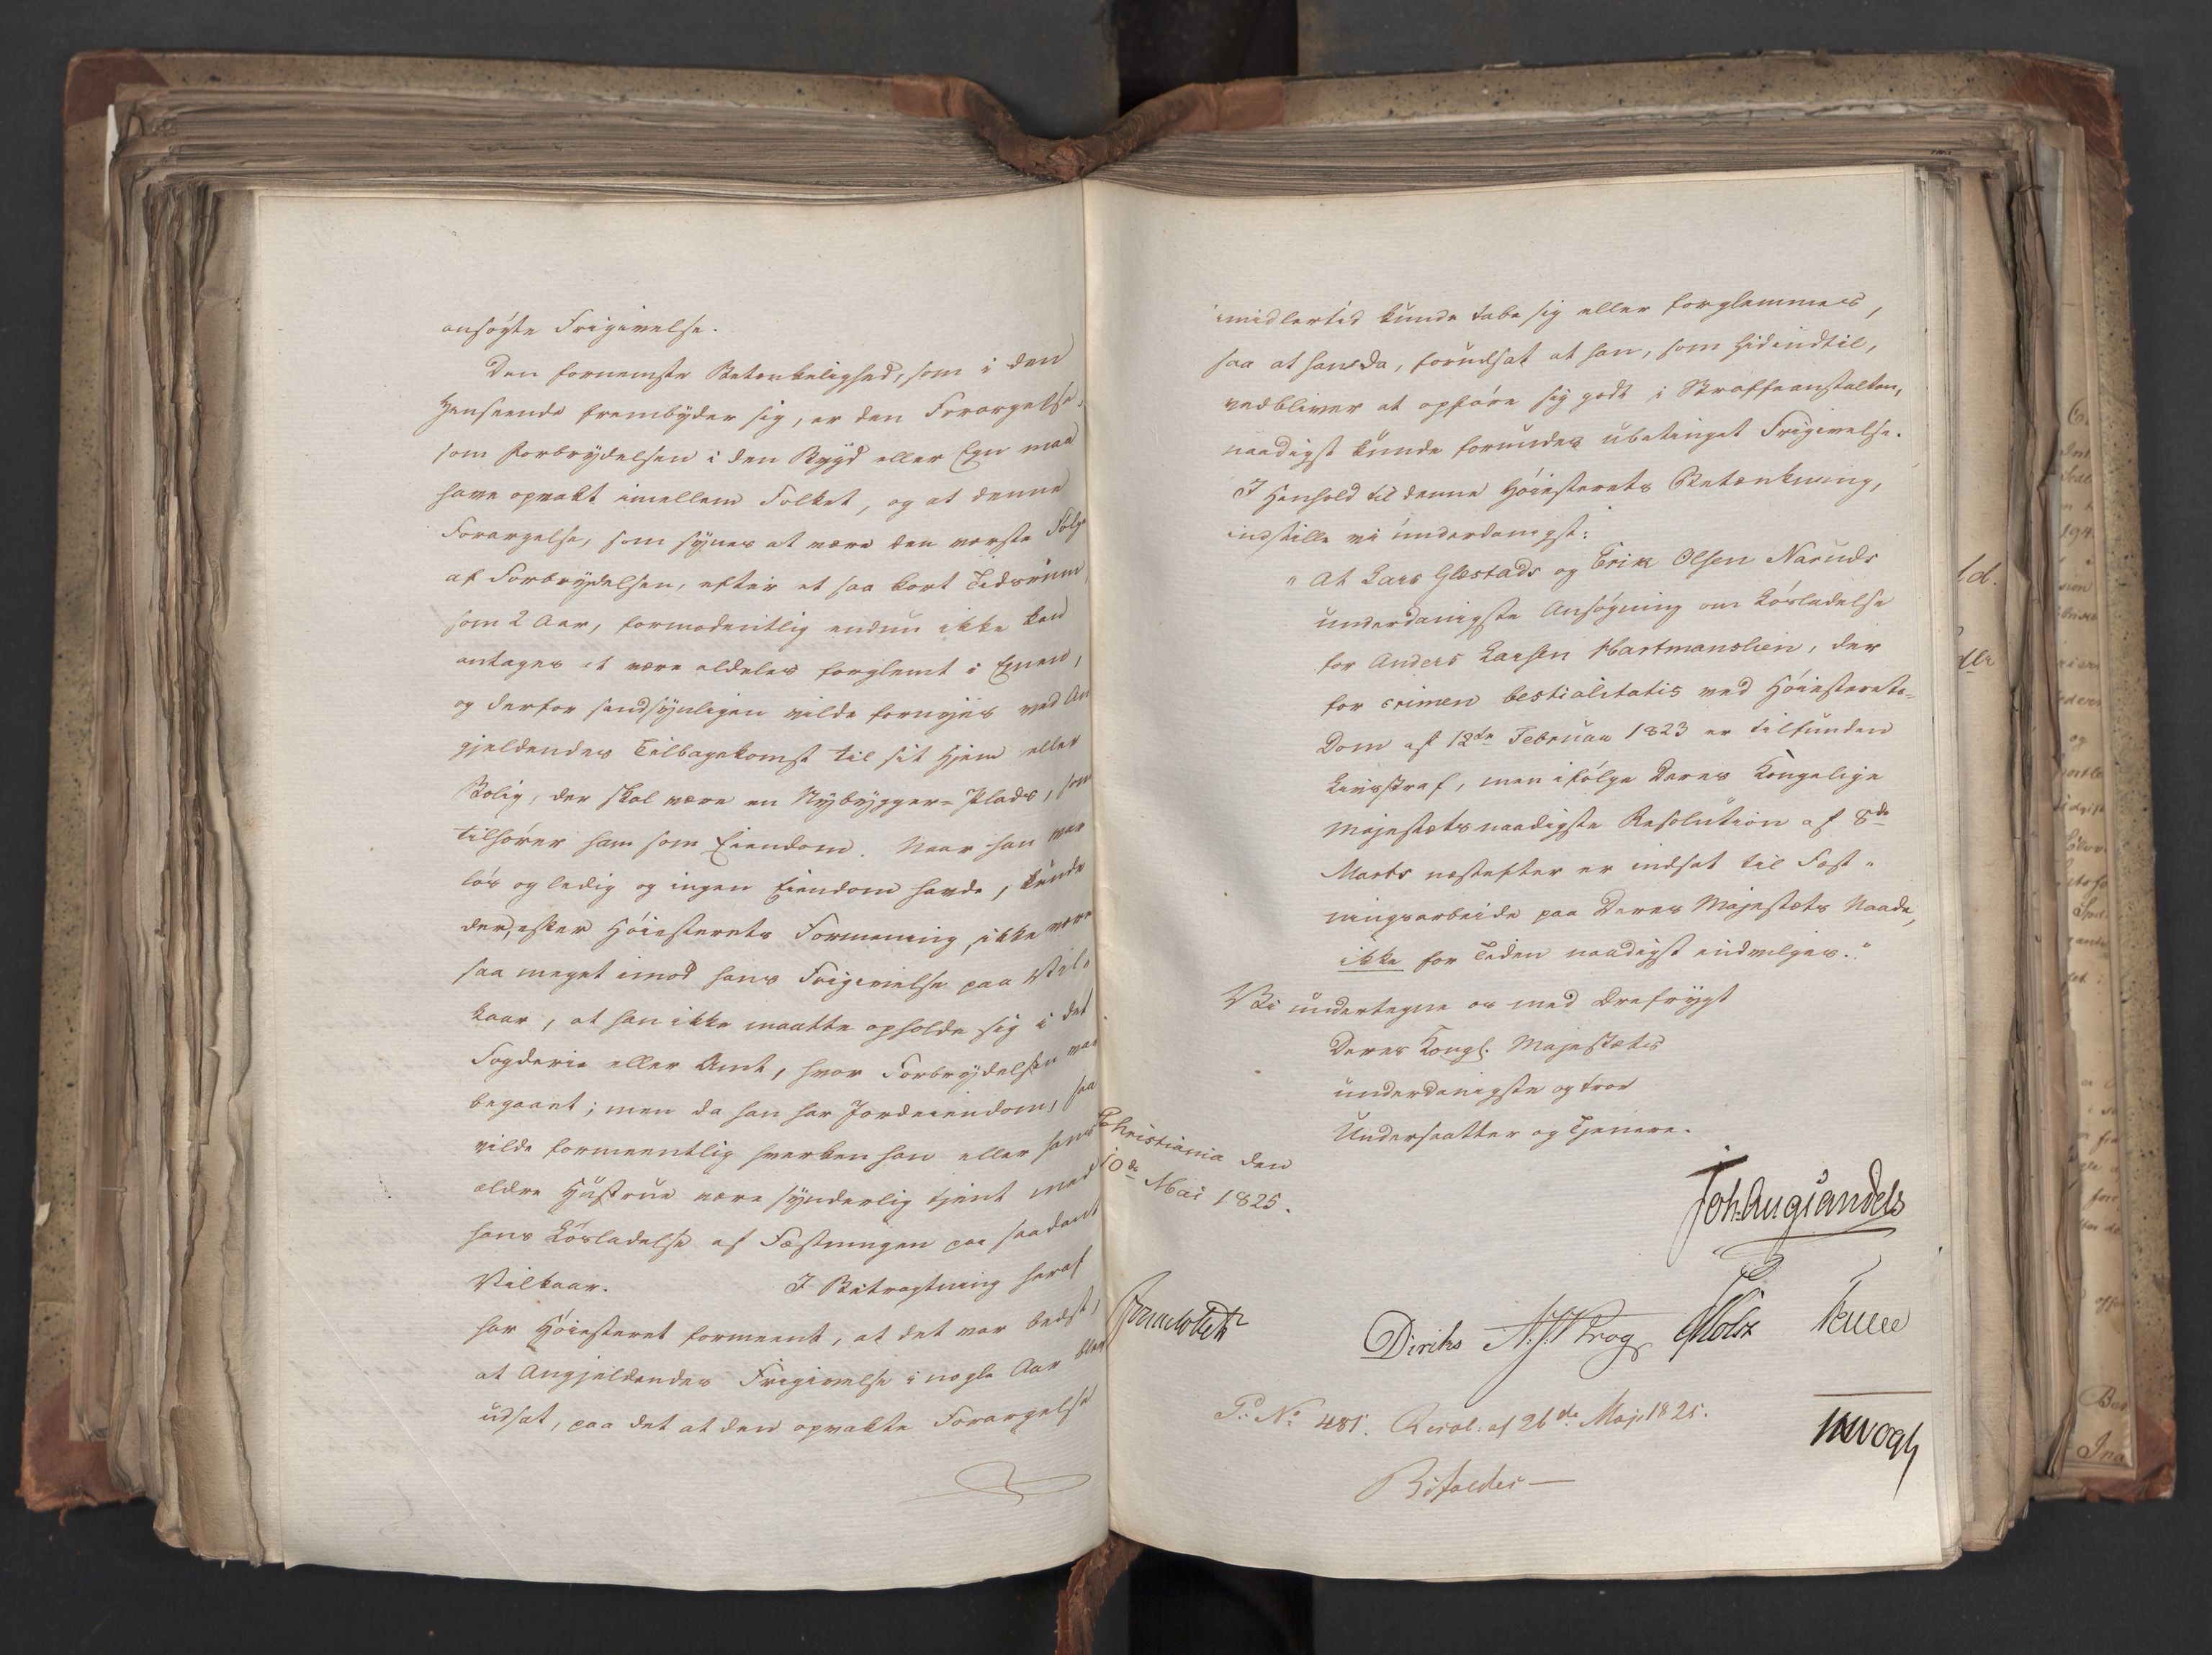 ansøgte Frigivelse.
Den fornemste Betænkelighed, som i den
Henseende frembyder sig, er den Forargelse,
som Forbrydelsen i den Bygd eller Egn maa
have opvakt imellem Folket, og at denne
Forargelse, som synes at være den værste Følge
af Forbrydelsen, efter et saa kort Tidsrum,
som 2 Aar, formodentlig endnu ikke kan
antages at være aldeles forglemt i Egnen,
og derfor sandsynligen vilde fornyes ved An
gjeldendes Tilbagekomst til sit Hjem eller
Bolig, der skal være en Nybygger-Plads, som
tilhører ham som Eiendom. Naar han var
løs og ledig og ingen Eiendom havde, kunde
der, efter Høiesterets Formening, ikke være
saa meget imod hans Frigivelse paa Vil-
kaar, at han ikke maatte opholde sig i det
Fogderie eller Amt, hvor Forbrydelsen var
begaaet; men da han har Jordeiendom, saa
vilde formeentlig hverken han eller hans
ældre Hustrue være synderlig tjent med
hans Løsladelse af Fæstningen paa saadant
Vilkaar. I Betragtning heraf
har Høiesteret formeent, at det var bedst,
at Angjeldendes Frigivelse i nogle Aar blev
udsat, paa det at den opvakte Forargelse
imidlertid kunde tabe sig eller forglemmes,
saa at han da, forudsat at han, som hidindtil,
vedbliver at opføre sig godt i Straffeanstalten,
naadigst kunde forundes ubetinget Frigivelse.
I Henhold til denne Høiesterets Betænkning,
indstille vi underdanigst:
"At Lars Glæstads og Erik Olsen Naruds
underdanigste Ansøgning om Løsladelse
for Anders Larsen Hartmanslien, der
for crimen bestialitatis ved Høiesterets-
Dom af 12te Februar 1823 er tilfunden
Livsstraf, men ifølge Deres Kongelige
Majestæts naadigste Resolution af 8de
Marts næstefter er indsat til Fæst-
ningsarbeide paa Deres Majestæts Naade,
ikke for Tiden naadigst indvilges."
Vi undertegne os med Ærefrygt
Deres Kongl. Majestæts
underdanigste og troe
Undersaatter og Tjenere.
Christiania den
10de Mai 1825.
Joh. Aug. Sandels
Diriks N. J. Krog Motz
P: No 481. Resol: af 26de Maji 1825.
Vogt
Bifaldes —